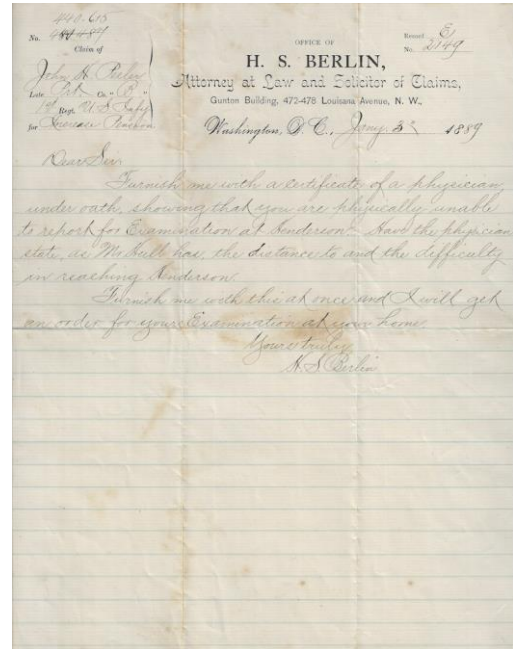 440.615
No. 
Claim of
John H.
Late Pvt Co. "B"
1st Regt. U.S.
for Increase Pension
OFFICE OF
H. S. BERLIN,
Attorney at Law and Solicitor of Claims,
Gunton Building, 472-478 Louisana Avenue, N. W.,
Record E
No. 2149
Washington, D. C., Jany. 3d 1889
Dear Sir
Furnish me with a certificate of a physician,
under oath, showing that you are physically unable
to report for Examination at Henderson. Have the physician
state, as Mr Hull has, the distance to and the difficulty
in reaching Henderson
Furnish me with this at once and I will get
an order for your Examination at your home.
Yours truly
H. S. Berlin